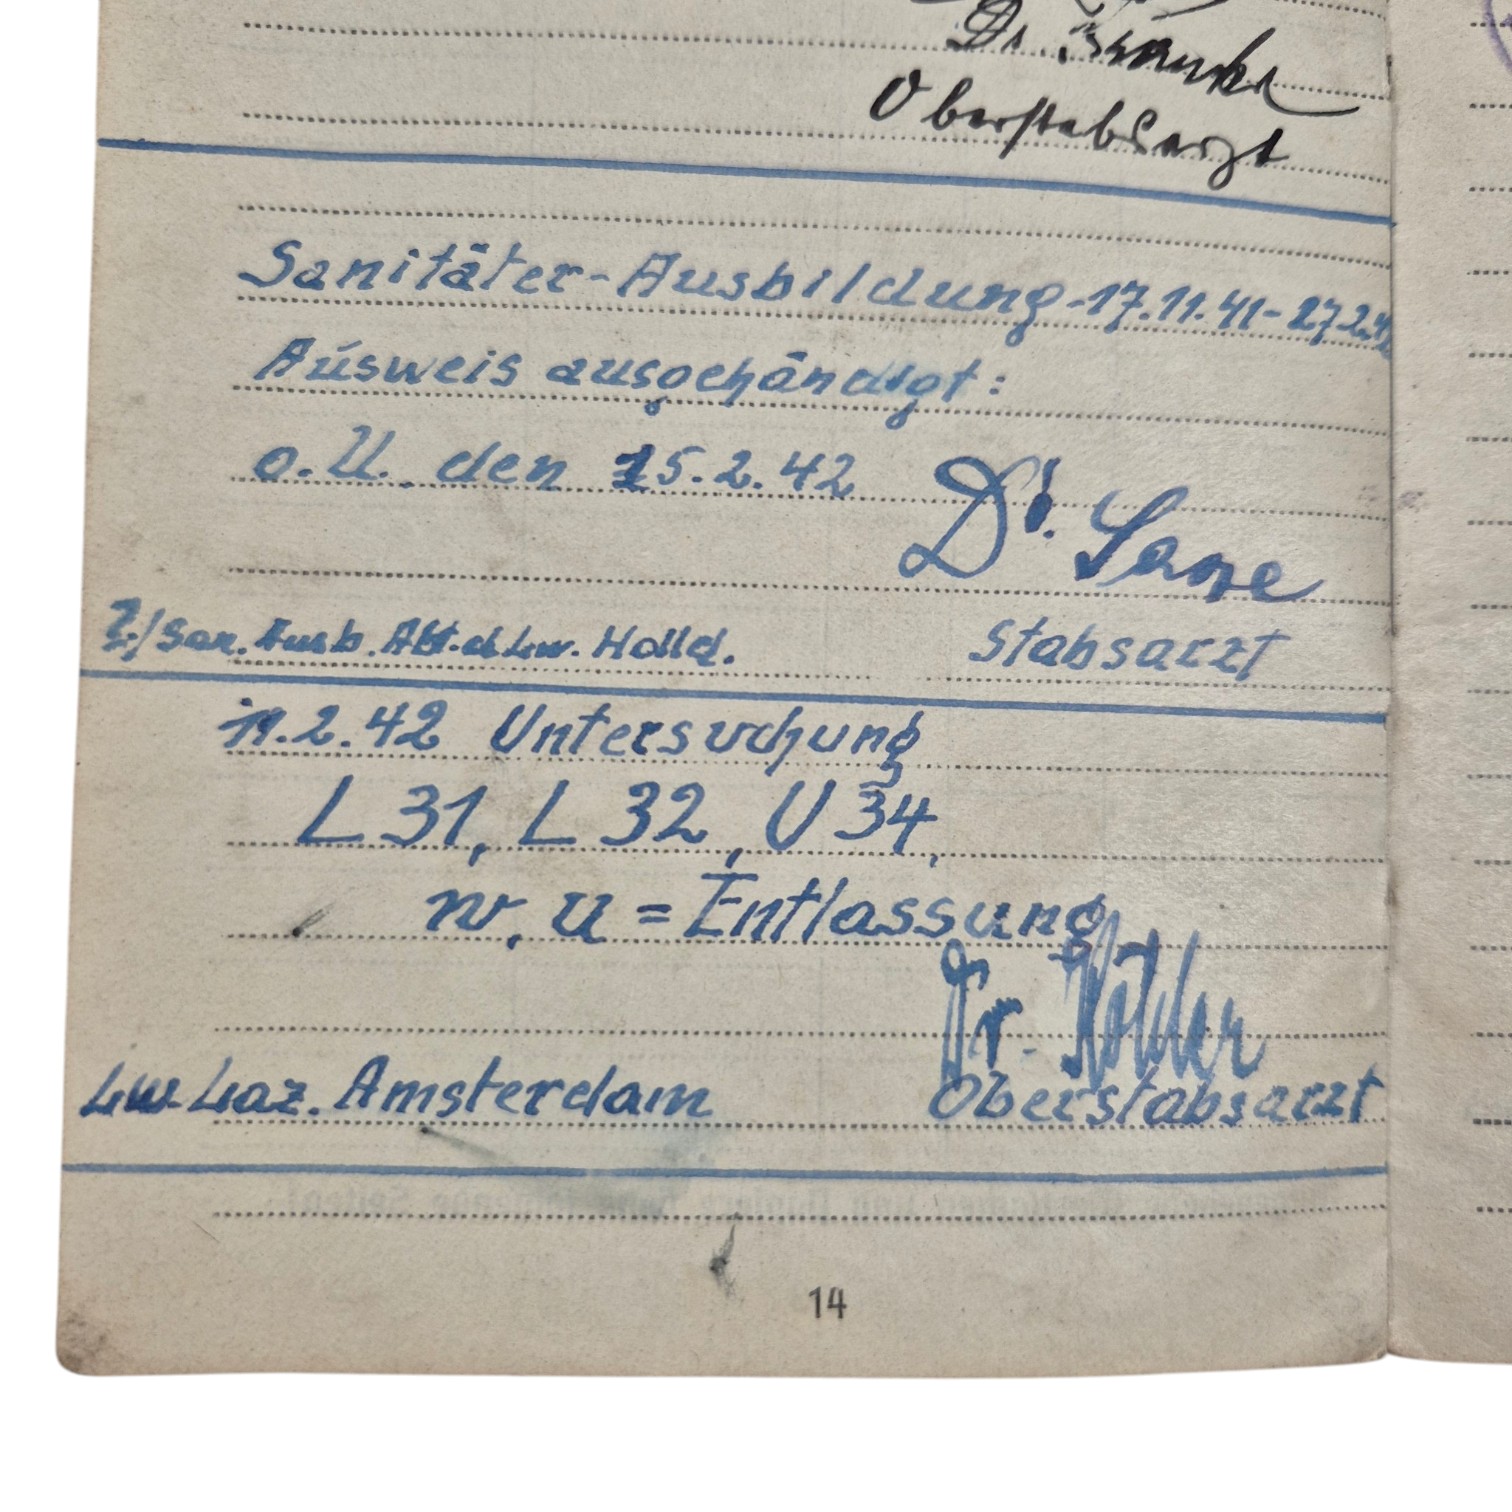 Dr.
Oberstabsarzt
Sanitäter-Ausbildung-17.11.41-27.2.42
Ausweis ausgehändigt:
o.U. den 15.2.42
Dr.
/San. Ausb. Abt. d. Lw. Holld.
Stabsarzt
19.2.42 Untersuchung
L 31, L 32, U 34,
w. u = Entlassung
Dr.
Lw-Laz. Amsterdam
Oberstabsarzt
14